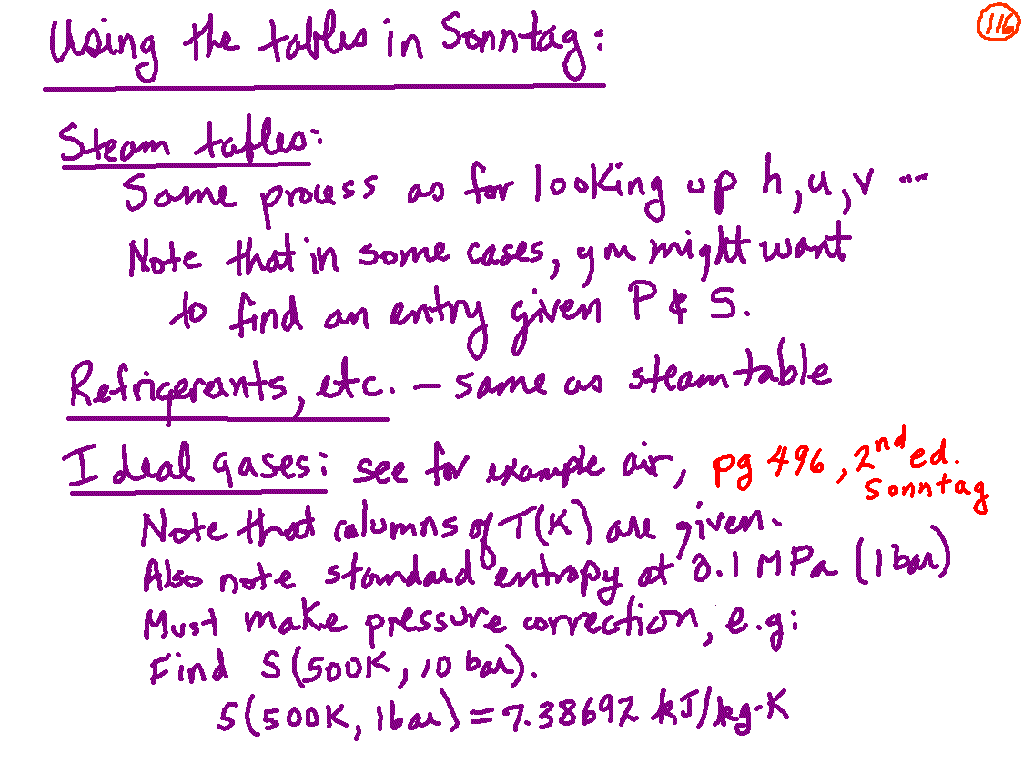 116
Using the tables in Sonntag:
Steam tables:
Same process as for looking up h, u, v ...
Note that in some cases, you might want
to find an entry given P & S.
Refrigerants, etc. – same as steam table
Ideal gases: see for example air, pg 496, 2nd ed. Sonntag
Note that columns of T(K) are given.
Also note standard entropy at 0.1 MPa (1 bar)
Must make pressure correction, e.g:
Find S(500K, 10 bar).
S(500K, 1bar) = 7.38692 kJ/kg-K